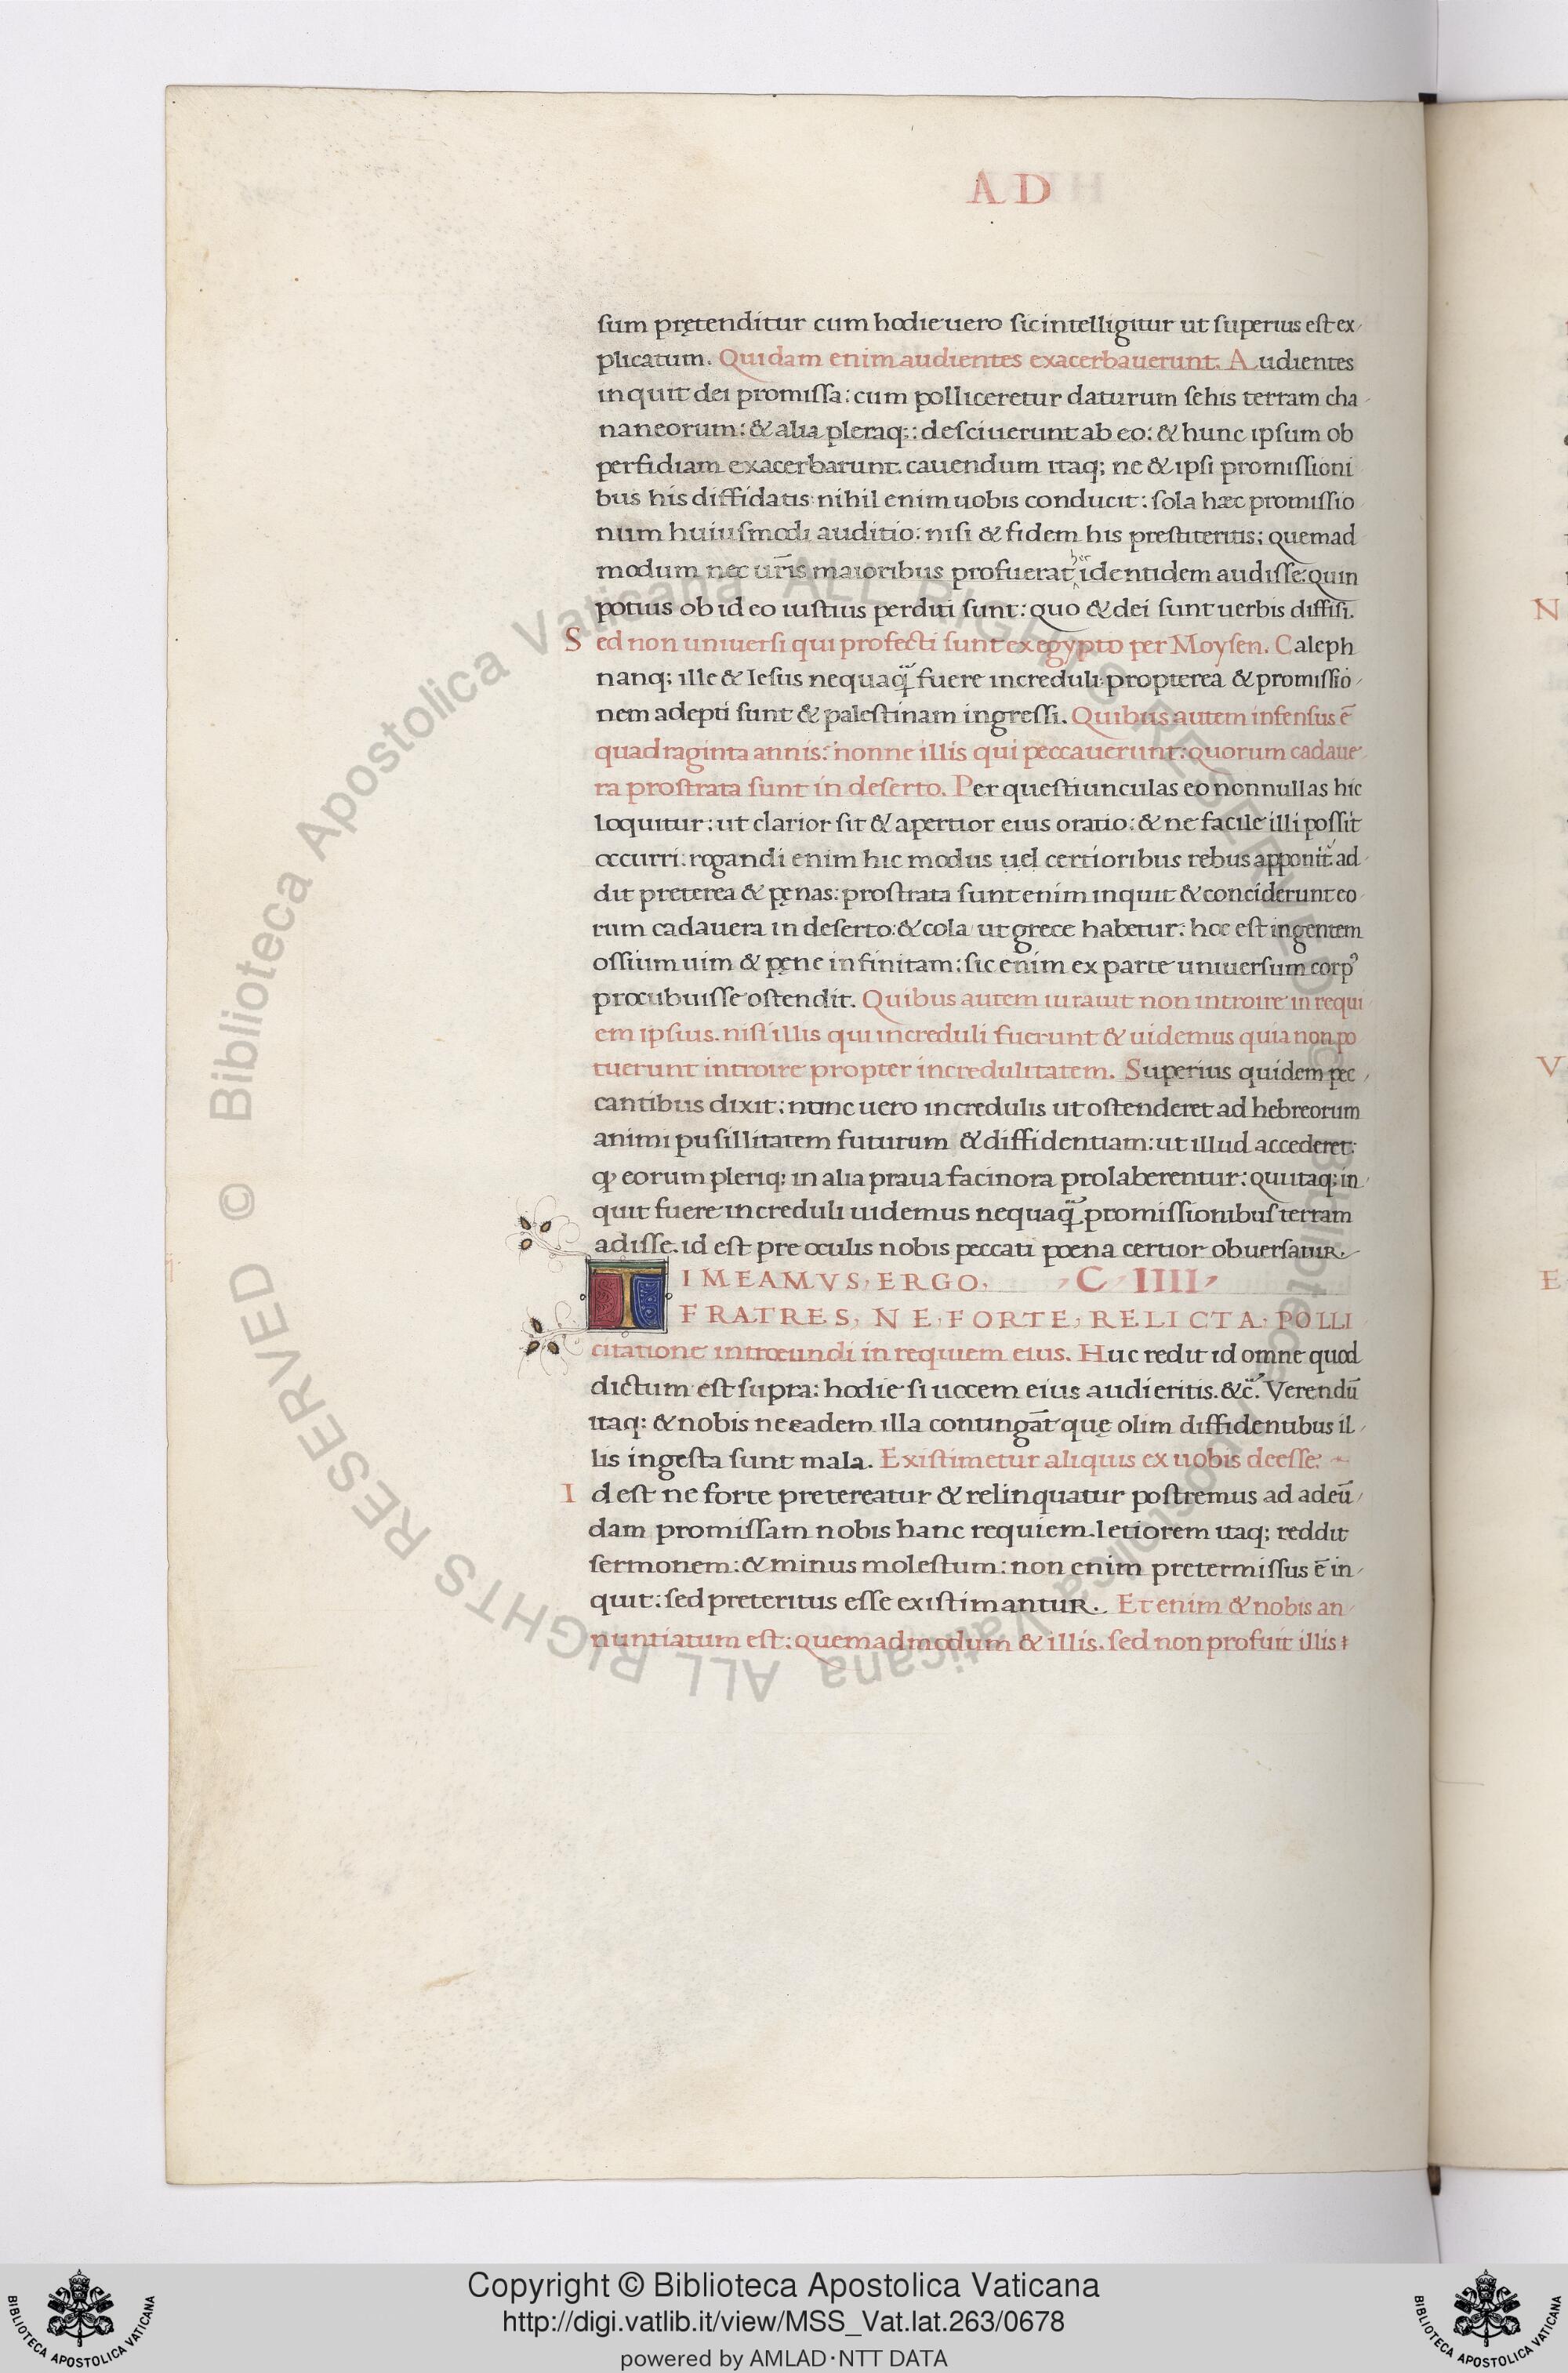 A D
sum prętenditur cum hodie uero sic intelligitur ut superius est ex
plicatum. Quidam enim audientes exacerbauerunt. Audientes
inquit dei promissa: cum polliceretur daturum se his terram cha
naneorum: & alia pleraq;: desciuerunt ab eo: & hunc ipsum ob
perfidiam exacerbarunt. cauendum itaq; ne & ipsi promissioni
bus his diffidatis: nihil enim uobis conducit: sola hæc promissio
num huiusmodi auditio: nisi & fidem his prestiteritis; quemad
modum nec ur̄is maioribus profuerat hęc identidem audisse: quin
potius ob id eo iustius perditi sunt: quo & dei sunt uerbis diffisi.
Sed non uniuersi qui profecti sunt ex egypto per Moysen. Caleph
nanq; ille & Iesus nequaq̃ fuere increduli: propterea & promissio
nem adepti sunt & palestinam ingressi. Quibus autem infensus ē
quadraginta annis: nonne illis qui peccauerunt: quorum cadaue
ra prostrata sunt in deserto. Per questiunculas eo nonnullas hic
loquitur: ut clarior sit & apertior eius oratio: & ne facile illi possit
occurri: rogandi enim hic modus uel certioribus rebus apponit̃. ad
dit preterea & pęnas: prostrata sunt enim inquit & conciderunt eo
rum cadauera in deserto: & cola ut grece habetur: hoc est ingentem
ossium uim & pęne infinitam: sic enim ex parte uniuersum corpꝰ
procubuisse ostendit. Quibus autem iurauit non introire in requi
em ipsius. nisi illis qui increduli fuerunt & uidemus quia non po
tuerunt introire propter incredulitatem. Superius quidem pec
cantibus dixit: nunc uero incredulis ut ostenderet ad hebreorum
animi pusillitatem futurum & diffidentiam: ut illud accederet:
ꝙ eorum pleriq; in alia praua facinora prolaberentur: qui itaq; in
quit fuere increduli uidemus nequaq̃ promissionibus terram
adisse. id est pre oculis nobis peccati poena certior obuersatur.
TIMEAMVS, ERGO, C IIII
FRATRES, NE, FORTE, RELICTA, POLLI
citatione introeundi in requiem eius. Huc redit id omne quod
dictum est supra: hodie si uocem eius audieritis. &c̃. Verendū
itaq; & nobis ne eadem illa contingāt quę olim diffidentibus il
lis ingesta sunt mala. Existimetur aliquis ex uobis deesse:
Id est ne forte pretereatur & relinquatur postremus ad adeū
dam promissam nobis hanc requiem. letiorem itaq; reddit
sermonem: & minus molestum: non enim pretermissus ē in
quit: sed preteritus esse existimantur. Et enim & nobis an
nuntiatum est: quemadmodum & illis. sed non profuit illis
N
V
E
© Biblioteca Apostolica Vaticana ALL RIGHTS RESERVED © Biblioteca Apostolica Vaticana ALL RIGHTS RESERVED
Copyright © Biblioteca Apostolica Vaticana
http://digi.vatlib.it/view/MSS_Vat.lat.263/0678
powered by AMLAD·NTT DATA
BIBLIOTECA APOSTOLICA VATICANA
BIBLIOTECA APOSTOLICA VATICANA